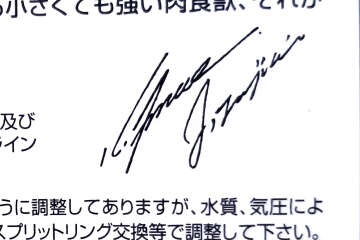 も小さくても強い肉食獣、それが
及び
ライン
うに調整してありますが、水質、気圧によ
スプリットリング交換等で調整して下さい。